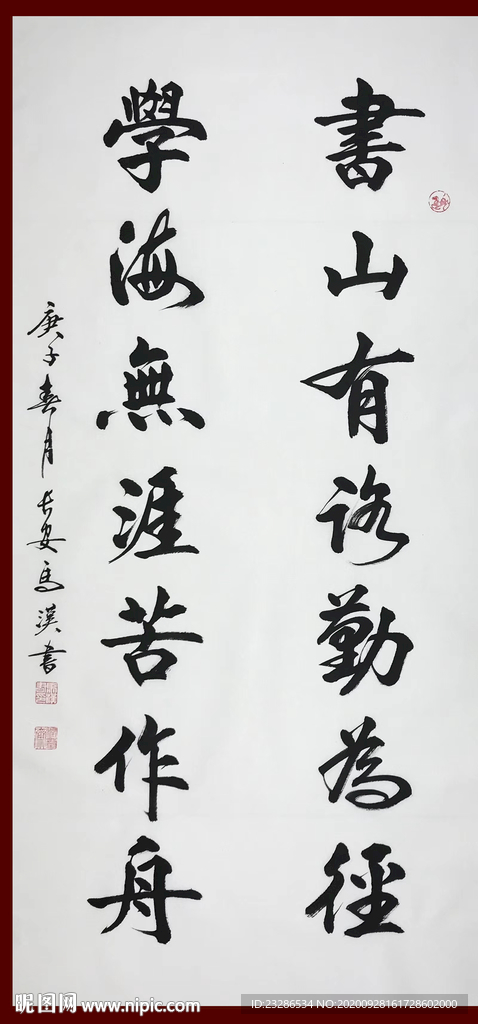 書山有路勤為徑
學海無涯苦作舟
庚子春月長安馬漢書
昵图网 www.nipic.com
ID:23286534 NO:20200928161728602000